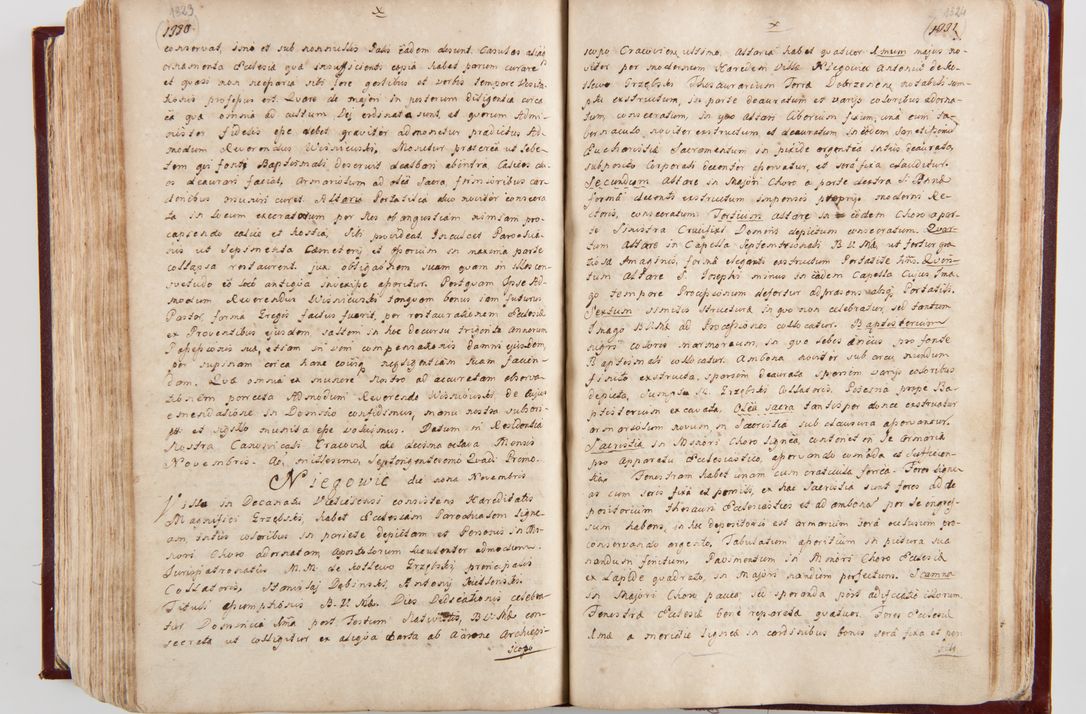 1323
1330.
conservat, imo et sub nonnullis Palis eadem desunt. Casulas aliaq
ornamenta Ecclesiæ quæ insufficienti copia habet parum curare
et quasi non necessaria sibi fore gestibus et verbis tempore Visita
tionis professus est. Quare de majori in posterum diligentia circa
ea quæ omnia ad cultum Dei ordinata sunt, et quorum Admi-
nister fidelis esse debet graviter admonetur prædictus Ad-
modum Reverendus Wisniewski, Monetur præterea ut
tem qui fonti Baptismali deservit dealbari
os deaurari faciat, Armariolum ad olea Sacra firmioribus car
dinibus muniri curet. Altaria Portatilia duo noviter consecra
ta in locum execratorum per se ob angustiam nimiam pro
capiendo calice et hostia, sibi provideat. Inculcet Parochia
nis ut Sepimenta Cæmeterij et in maxima parte
collapsa restaurent juxta obligationem suam quam in
svetudo eo loco antiqua invexisse asseritur. Postquam Ipse Ad-
modum Reverendus Wisniewski tanquam bonus jam futurus
Pastor, forma Gregis factus fuerit, pro restauratione Ecclesiæ
ex Proventibus ejusdem saltem in hoc decursu triginta Annorum
Possessionis suæ, etiam in vim compensationis damni ejusdem,
per supinam circa hanc negligentiam suam
dam. Quæ omnia ex munere Nostro ad accuratam observa-
tionem porrecta Admodum Reverendo Wisniewski, de Cujus
emendatione in Domino confidimus, manu nostra subscri-
pta et sigillo munita esse voluimus. Datum in Residentia
Nostra Canonicali Cracoviæ die decima octava Mensis
Novembris. Ao millesimo, Septongentesimo Quadi Primo.
Niegowić die nona Novembris
Villa in Decanatu Vielicensi consistens Hæreditatis
Magnifici Grzębski, habet Ecclesiam Parochialem ligne
am, intus coloribus in pariete depictam et Penorus in Mi
nori Choro adornatam Apostolorum luculenter admodum.
Jurispatronatus M.M. de Kossewo Grzębski principalis
Collatoris, Stanislaj Dębinski, Antonij
Tituli Assumptionis B.V. Mæ. Dies Dedicationis celebra-
tur Dominica Ima post Festum Nativitis, B.V. Mæ con
secrata ut colligitur ex aliqua charta ab Archiepi-
scopo
1324
1331
scopo Cracovien, ultimo. Altaria habet quatuor Imum majus no-
viter per modernum Hæredem Villæ Niegowić Antonium de Ko-
ssewo Grzębski Thesaurarium Terræ Dobrzenen notabili sum-
ptu exstructum, in parte deauratum et varijs coloribus adorna-
tum, consecratum, in quo Altari Ciborium fixum, una cum Ta-
bernaculo, noviter exstructum, et deauratum in eodem Sanctissimu
Eucharistiæ Sacramentum in pixide argentea intus deaurata,
subposito Corporali decenter asservatur, et sera fixa clauditur.
Secundum Altare in Majori Choro a parte dextra S. Annæ
forma decenti exstructum impensis proprijs moderni Re
ctoris, consecratum. Tertium Altare in eodem Choro a par-
te sinistra Crucifixi Domini depictum consecratum. Quar-
tum Altare in Capella Septemtrionali B.V. Mæ, ut fertur gra
tiosæ Imaginis, forma eleganti exstructum Portatile hns. Quin-
tum Altare S. Josephi minus in eadem Capella Cujus Ima
go tempore Processionum defertur absq Portatili.
Sextum similis structuræ in quo non celebratur, sed tantum
Imago B.V. Mæ ad Processiones collocatur. Baptisterium
nigri coloris marmoreum, in quo lebes æneus pro fonte
Baptismali collocatur. Ambona noviter sub arcu nondum
finito exstructa sparsim deaurata sparsim varijs coloribus
depicta, sumptu M. Grzębski Collatoris. Piscina prope Ba-
ptisterium excavata. Olea sacra tantisper donec exstruatur
armariolum novum, in Sacristia sub clausura asservantur.
Sacristia in Minori Choro lignea, continet in se Armaria
pro Apparatu Ecclesiastico, asservando comoda et sufficien-
tia. Fenestram habet unam cum craticula ferrea. Fores ligne
as cum sera fixa et pensili, ex hac Sacristia sunt fores ad de
positorium thesauri Ecclesiastici et ad ambonam per se ingres-
sum habens, in hoc depositorio est armarium sera occlusum pro
conservando argento, Tabulatum asseritium in pictura sua
nondum finitum, Pavimentum in Minori Choro Ecclesiæ
ex Lapide quadrato, in Majori nondum perfectum. Scamna
in Majori Choro pauca, sed speranda post ædificatio illorum.
Fenestræ Ecclesiæ bene reparatæ quatuor. Fores Ecclesiæ
Ima a meridie lignea in cardinibus bonis sera fixa et pen